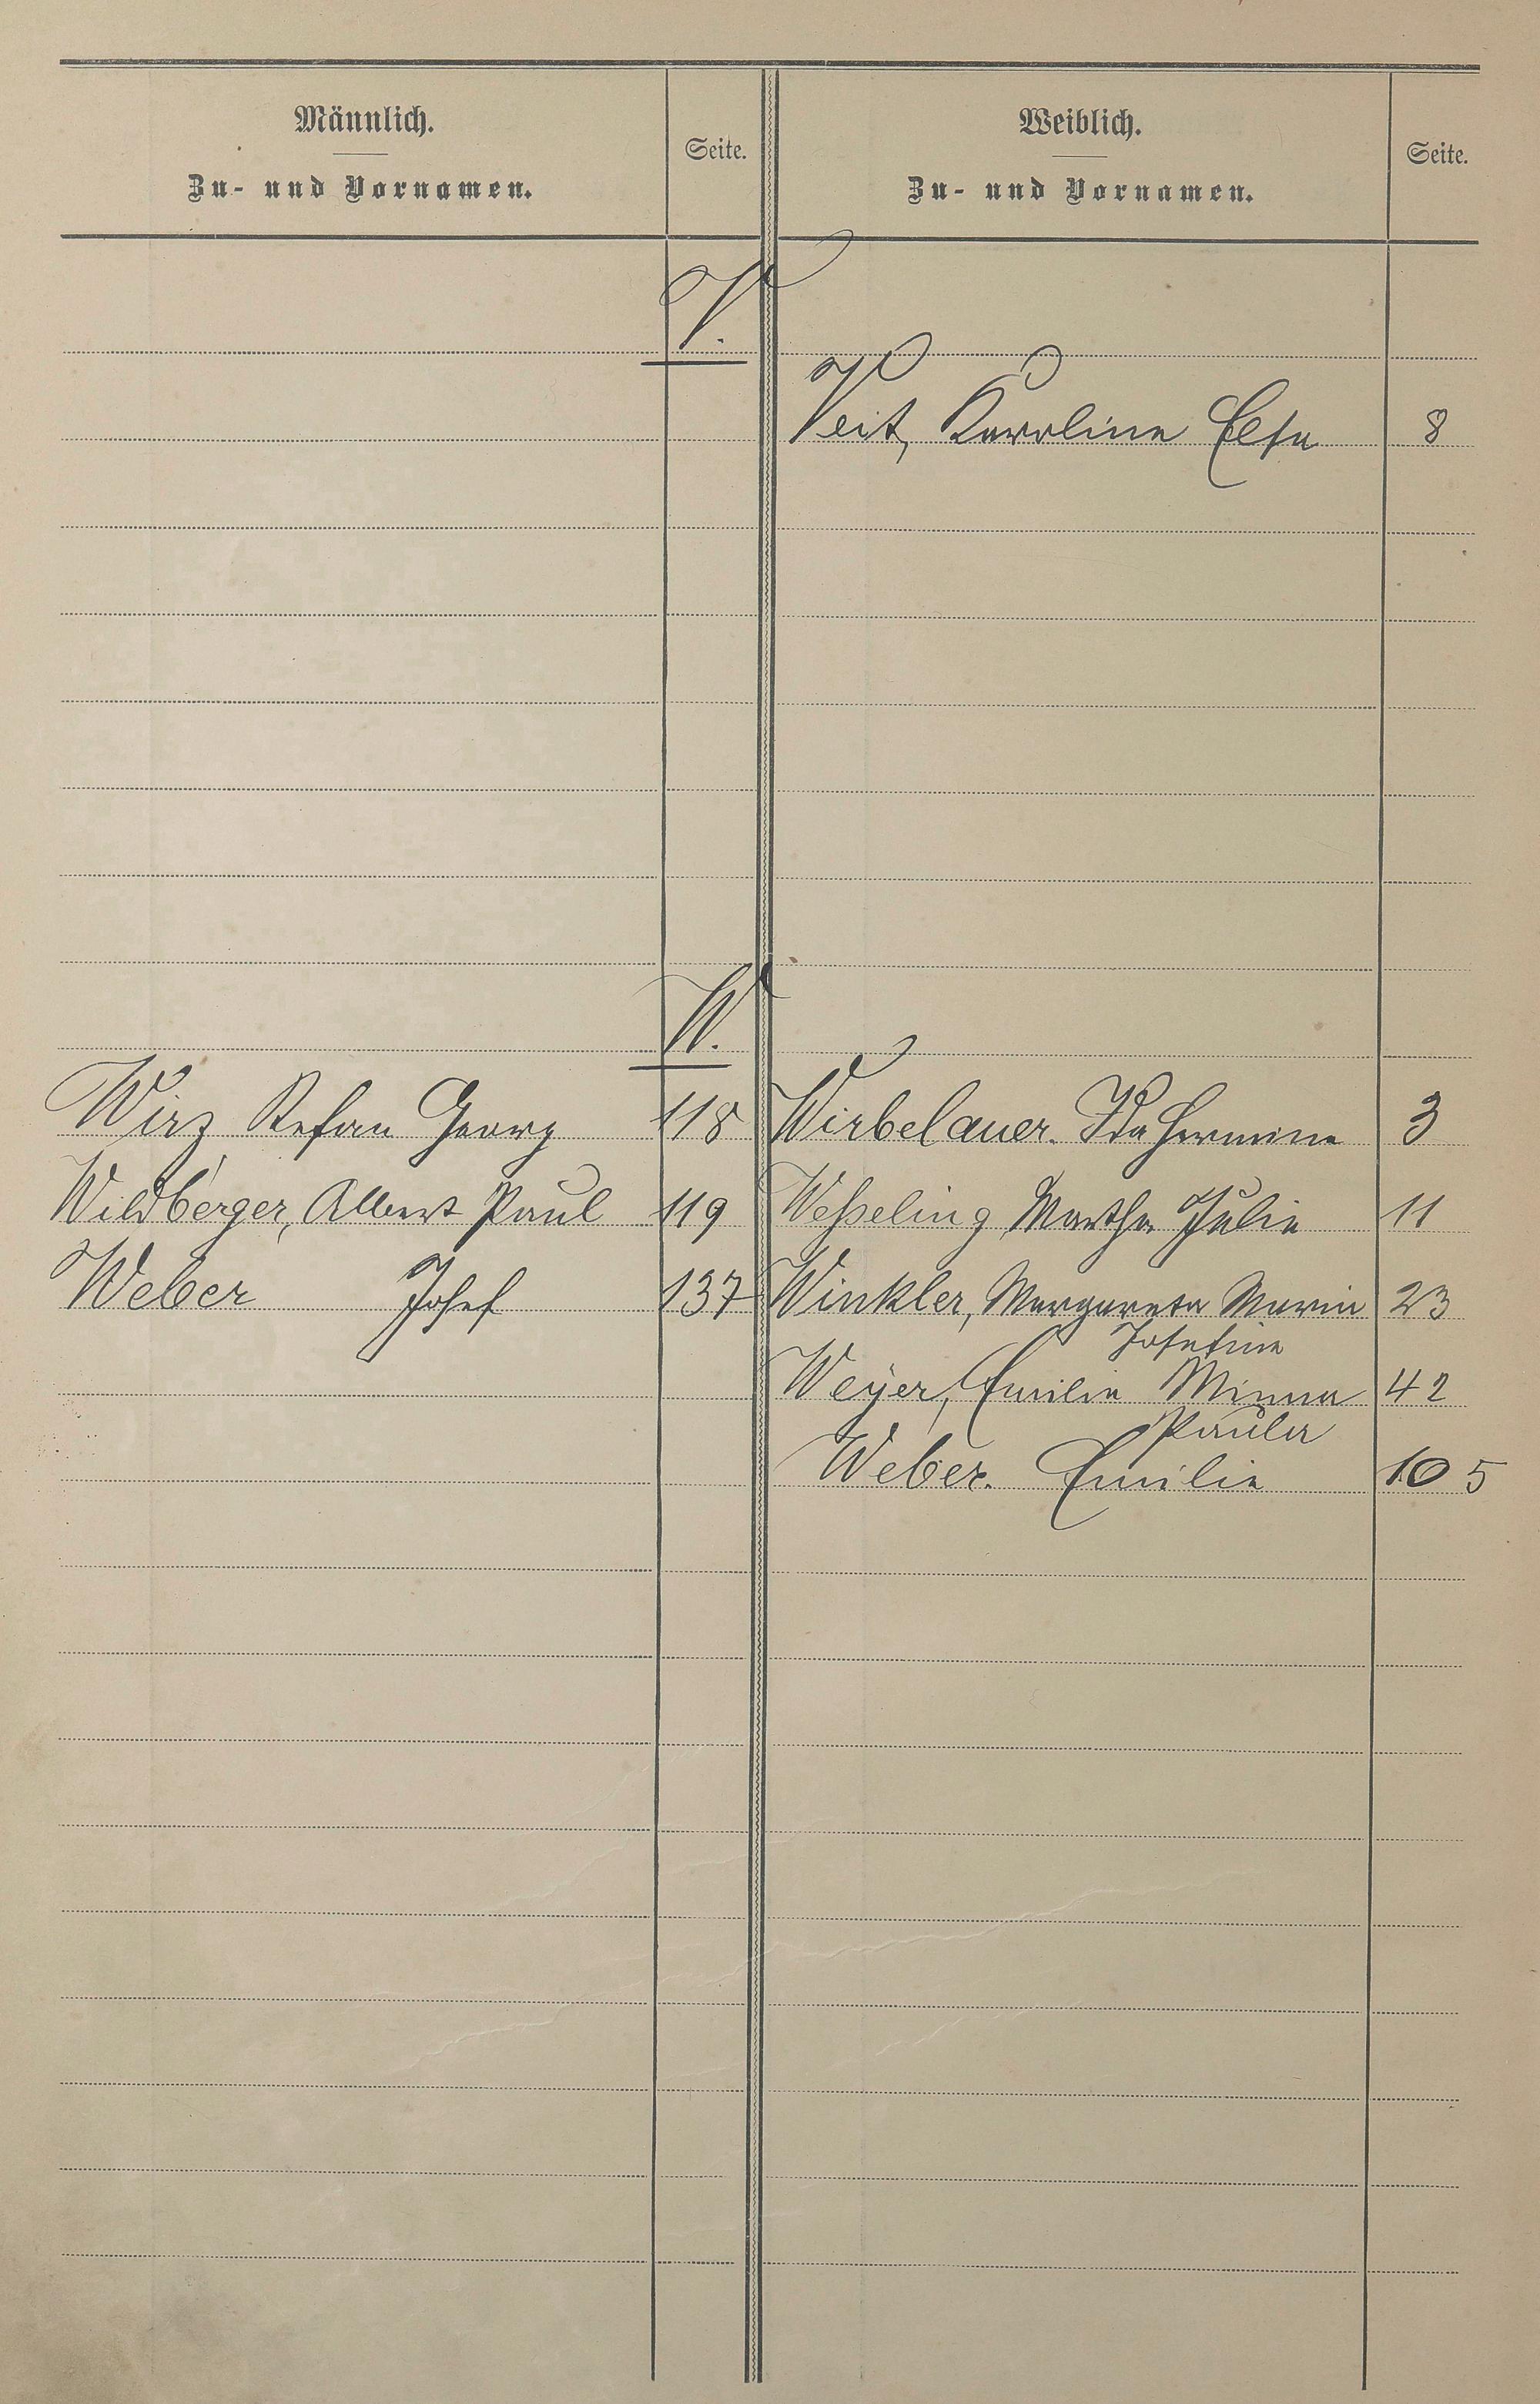 Männlich.
Zu- und Vornamen.
Seite.
Weiblich.
Zu- und Vornamen.
Seite.
V.
Veit, Karoline Elsa 8
W.
Wirz, Stefan Georg 118
Wirbelauer. Ida Hermine 3
Wildberger, Albert Paul 119
Weßeling, Martha Julie 11
Weber Josef 137
Winkler, Margareta Maria 23
Josefine
Weÿer, Emilie Minna 42
Paula
Weber. Emilie 105